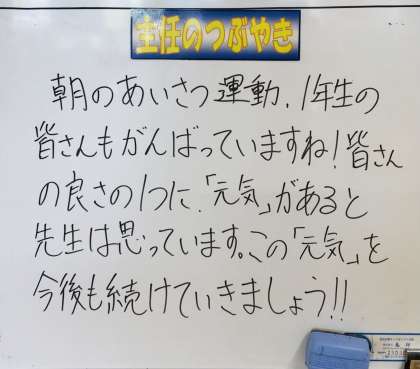 主任のつぶやき
朝のあいさつ運動、1年生の
皆さんもがんばっていますね!皆さん
の良さの1つに、「元気」があると
先生は思っています。この「元気」を
今後も続けていきましょう!!